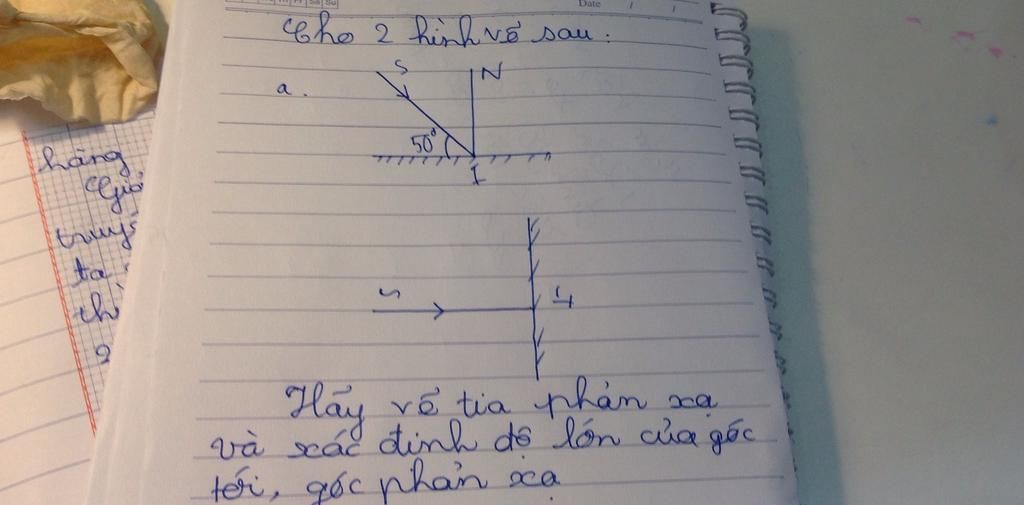 Date / /
Cho 2 hình vẽ sau:
a.
S
N
50°
I
S
I
Hãy vẽ tia phản xạ
và xác định độ lớn của góc
tới, góc phản xạ
hàng
Giả
truyề
ta
th
2